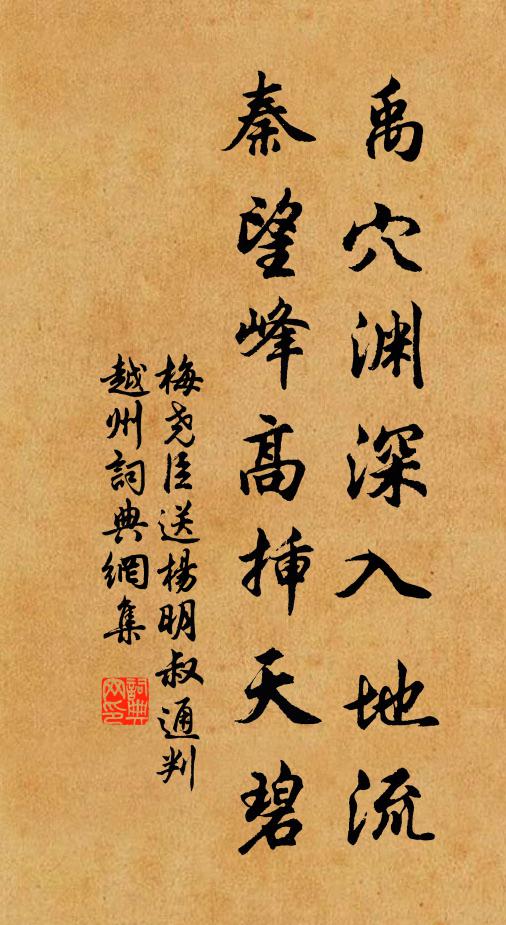 禹穴渊深入地流
秦望峰高揷天碧
梅尧臣送楊明叔通判
越州詞典網集
詞典网印